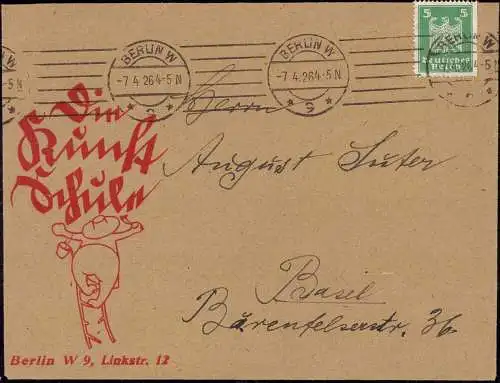 5 5
Deutsches
Reich
BERLIN W
-7.4.26.4-5 N
* 9 *
BERLIN W
-7.4.26.4-5 N
* 9 *
BERLIN W
4-5 N
Die
Kunst
Schule
Herrn
August Suter
Basel
Bärenfelserstr. 36
Berlin W 9, Linkstr. 12